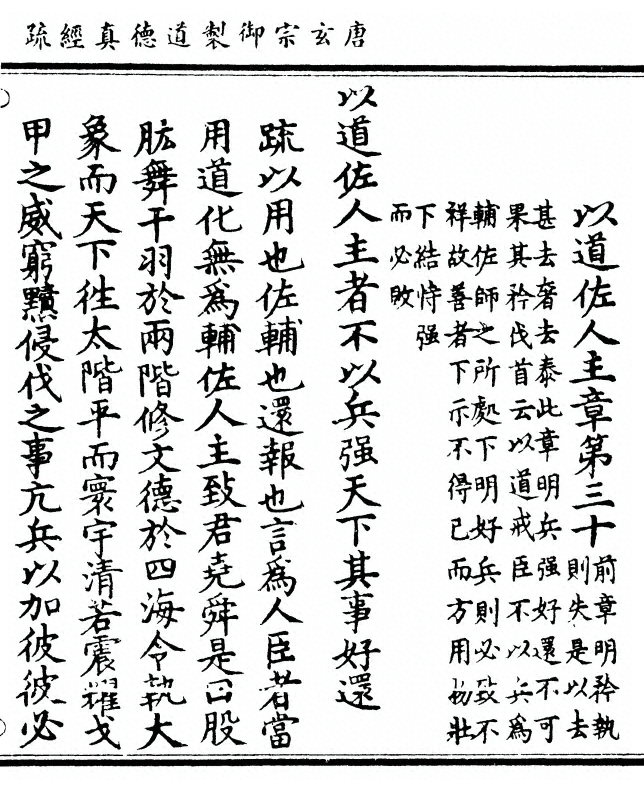 唐玄宗御製道德真經疏
以道佐人主章第三十
前章明矜執
則失是以去
甚去奢去泰此章明兵强好還不可
果其矜伐首云以道戒臣不以兵爲
輔佐師之所處下明好兵則必致不
祥故善者下示不得已而方用物壯
下結恃强
而必敗
以道佐人主者不以兵强天下其事好還
疏以用也佐輔也還報也言爲人臣者當
用道化無爲輔佐人主致君堯舜是曰股
肱舞干羽於兩階修文德於四海令執大
象而天下徃太階平而寰宇清若震耀戈
甲之威窮黷侵伐之事亢兵以加彼彼必